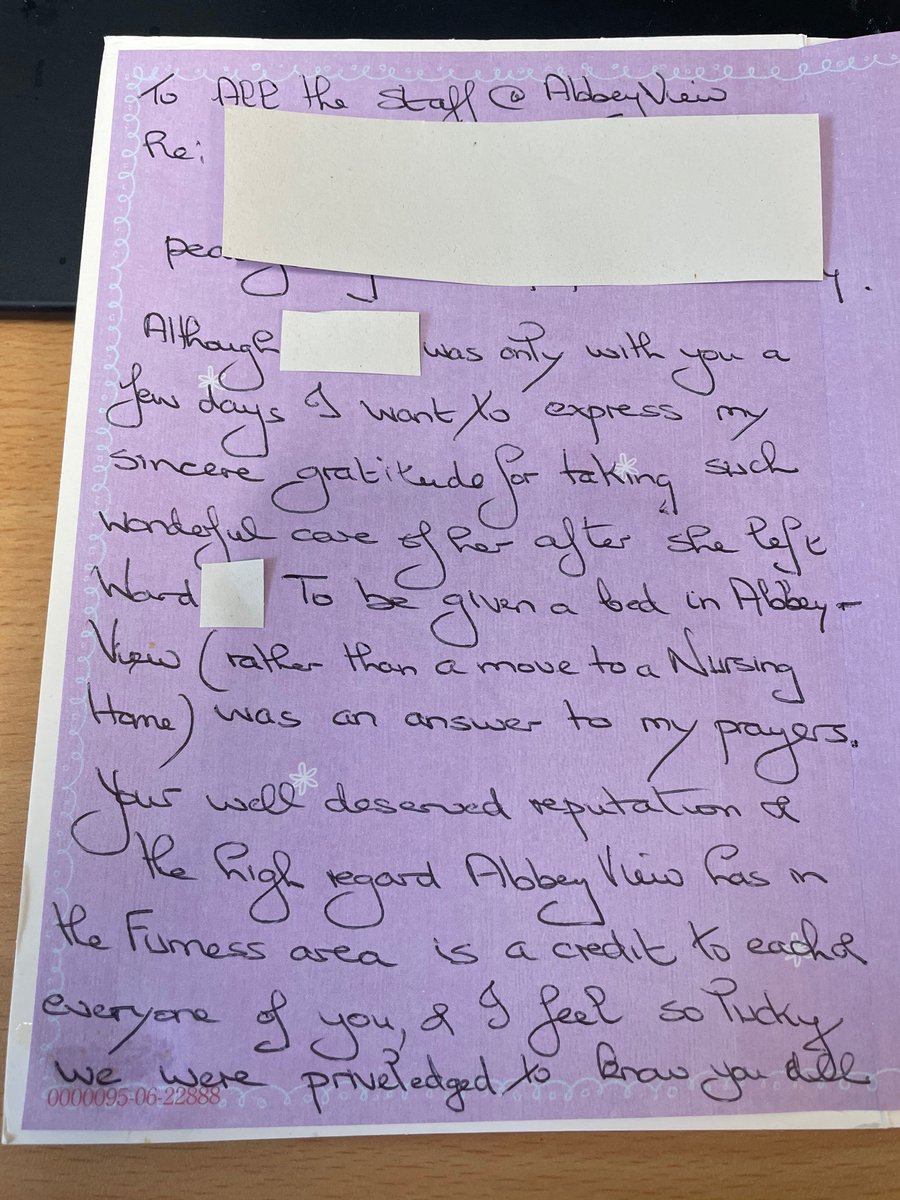 To All the Staff @ Abbey View
Re:
Although was only with you a
few days I want to express my
sincere gratitude for taking such
wonderful care of her after she left
Ward To be given a bed in Abbey-
View (rather than a move to a Nursing
Home) was an answer to my prayers.
Your well deserved reputation &
the high regard Abbey View has in
the Furness area is a credit to each &
everyone of you, & I feel so lucky
we were priveledged to know you all
0000095-06-22888